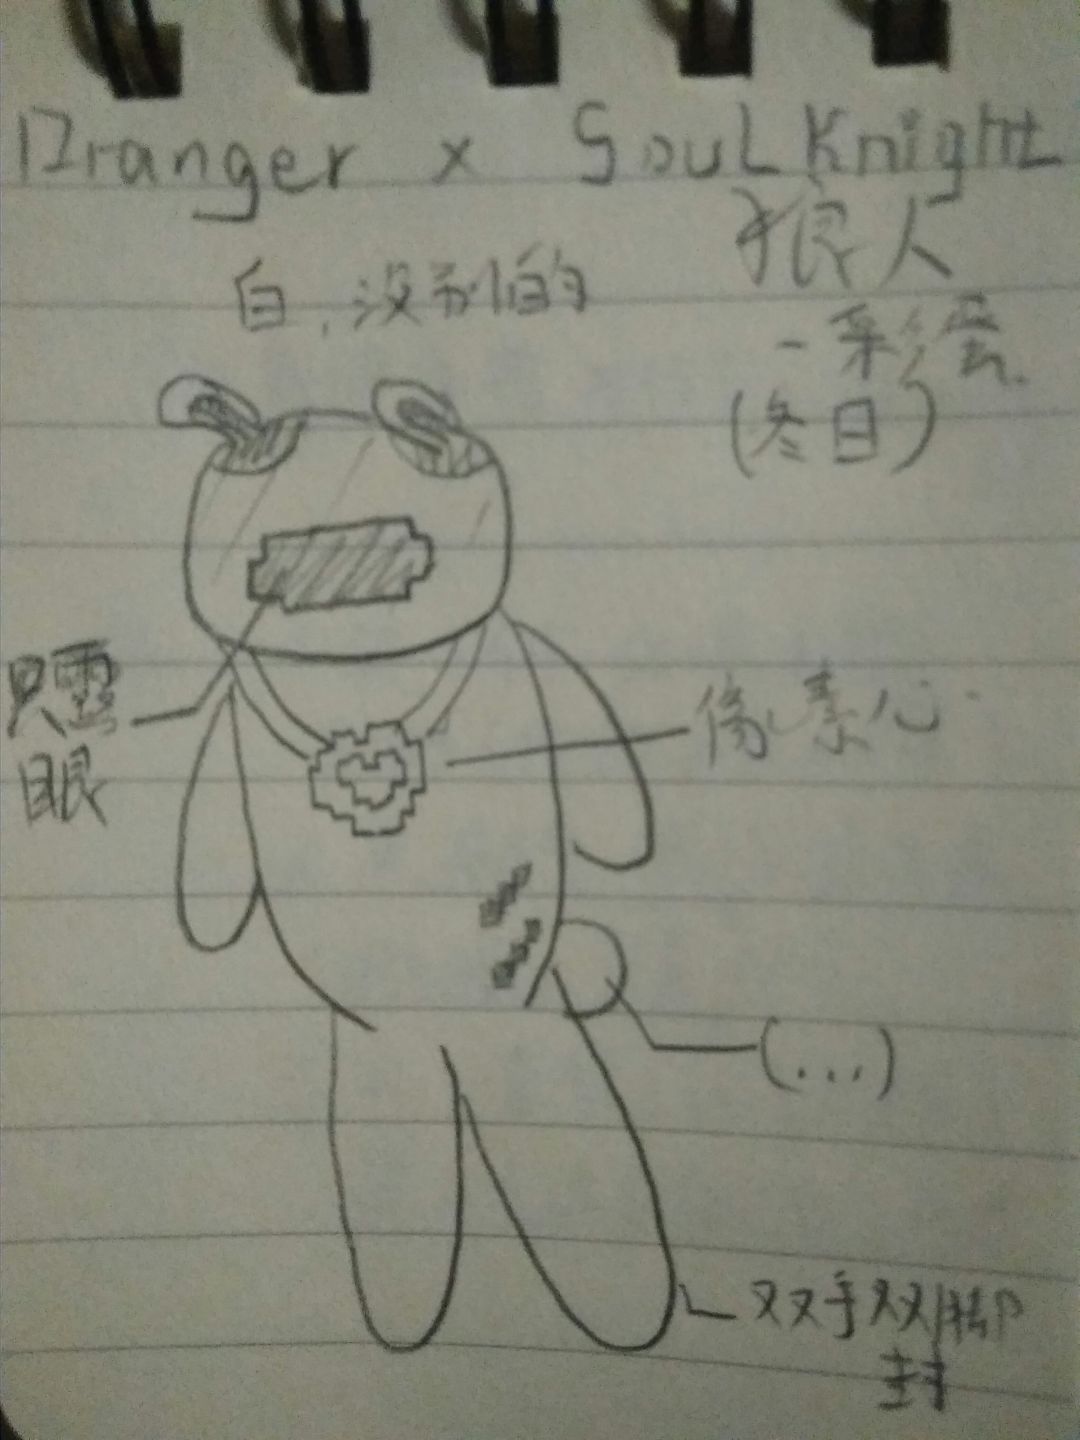 Dranger x Soul Knight
狼人
白,没别的
-彩蛋
(冬日)
只露
眼
像素心
(...)
双手双脚
封